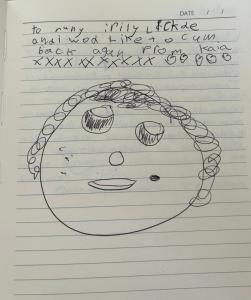 DATE / /
to runy irily Lickde
and i wod Like to cum
back agan From kaia
xxxx xx xxxxx